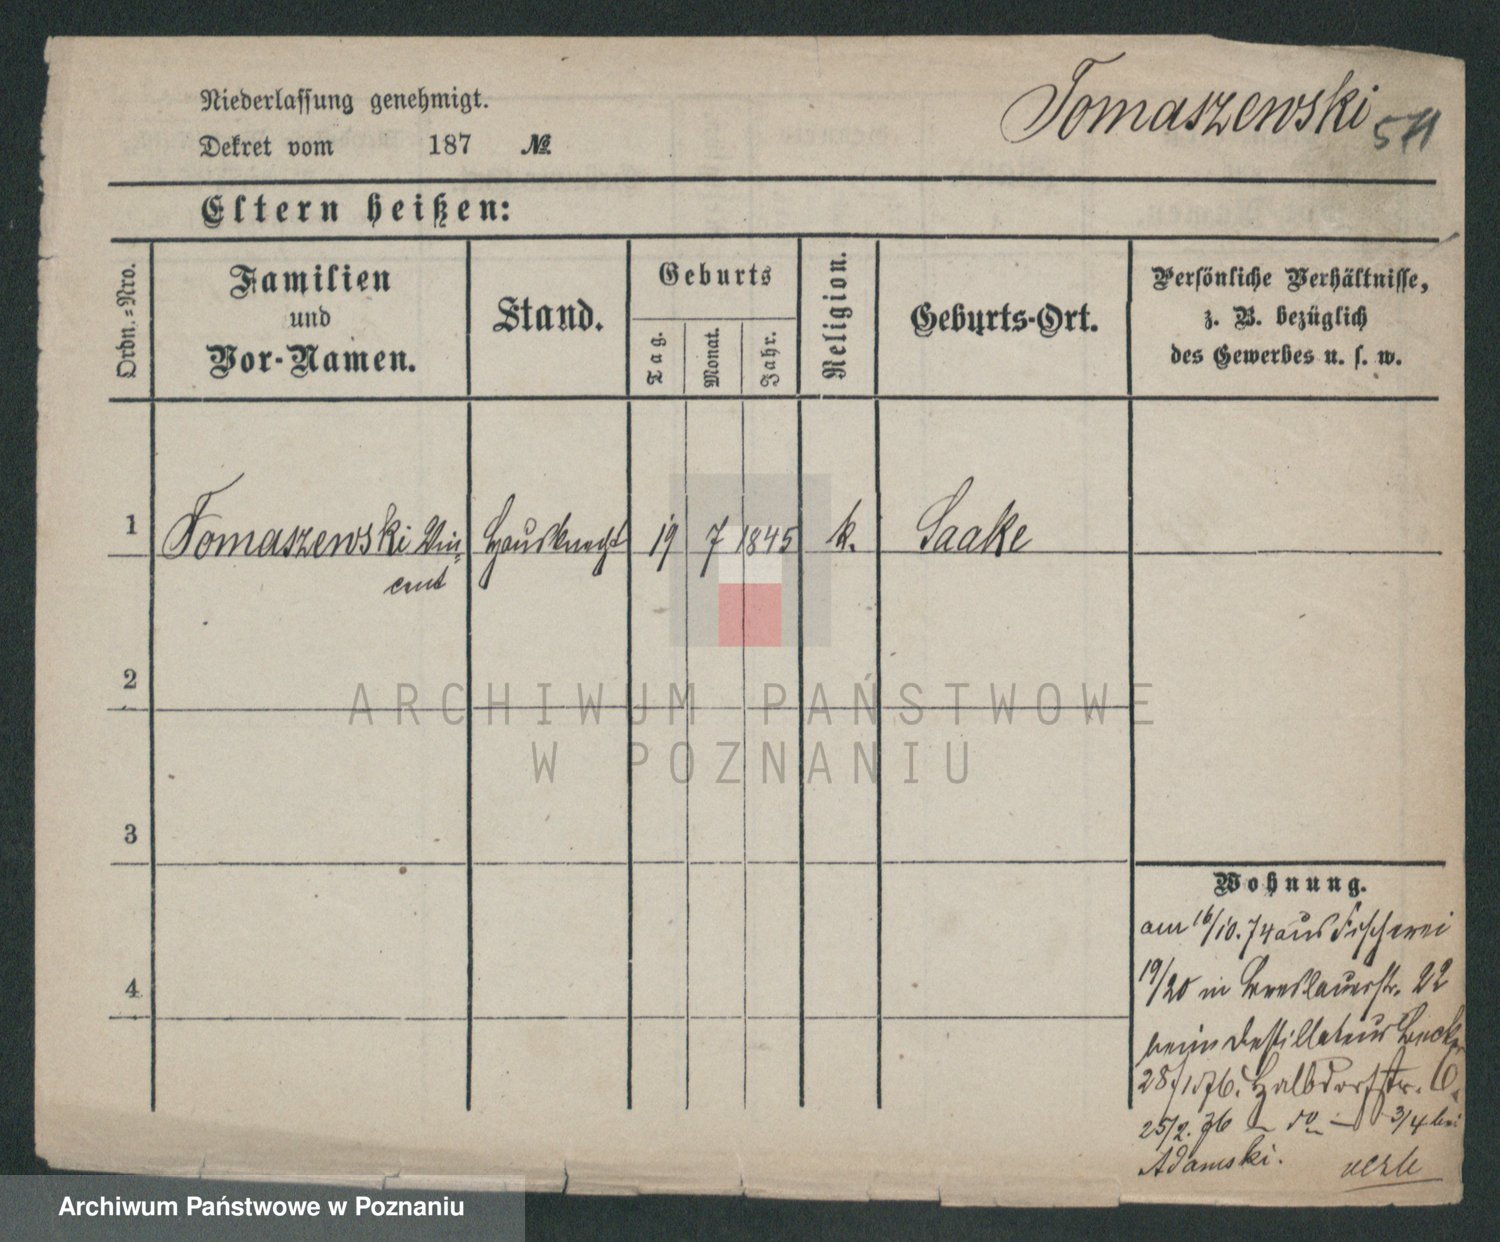 Tomaszewski
Niederlassung genehmigt.
Dekret vom 187 №
Eltern heißen:
Ordn.-Nro.
Familien
und
Vor-Namen.
Stand.
Geburts
Tag.
Monat.
Jahr.
Religion.
Geburts-Ort.
Persönliche Verhältnisse,
z. B. bezüglich
des Gewerbes u. s. w.
1 Tomaszewski Vin- Hausknecht 19 7 1845 k. Saake
cent
2
3
4
Wohnung.
am 16/10.74 aus Fischerei
19/20 in Breslauerstr. 22
beim Destillateur
Halbdorfstr.
25/2. 76 — do — 3/4 bei
Adamski.
ARCHIWUM PAŃSTWOWE
W POZNANIU
Archiwum Państwowe w Poznaniu